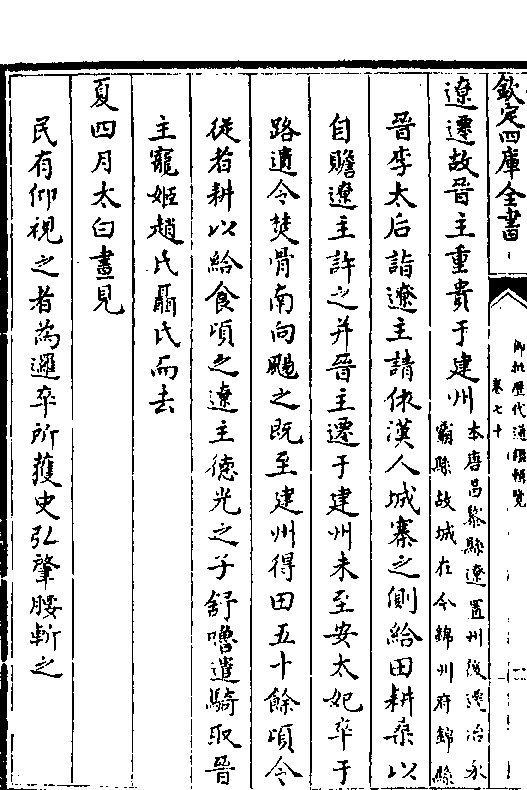 欽定四庫全書
御批歷代通鑑輯覽
卷七十
遼遷故晉主重貴于建州
本唐昌黎縣遼置州後遷治永
霸縣故城在今錦州府錦縣
晉李太后詣遼主請依漢人城寨之側給田耕桑以
自贍遼主許之并晉主遷于建州未至安太妃卒于
路遺令焚骨南向颺之既至建州得田五十餘頃令
從者耕以給食頃之遼主德光之子舒嚕遣騎取晉
主寵姬趙氏聶氏而去
夏四月太白晝見
民有仰視之者為邏卒所獲史弘肇腰斬之